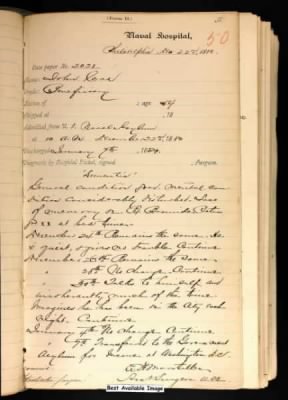 (Form 10.)
50
Naval Hospital,
Philadelphia Dec 22nd, 1880.
Case paper No. 2031
Name: John
Grade: Beneficiary
Native of ; age 54
Shipped at , 18
Admitted from U. S. Naval Asylum
a m A.M. December 22nd 1880
Discharged January 7th 1881.
Diagnosis by Hospital Ticket, signed , Surgeon.
"Dementia"
General condition good mental con
dition considerably disturbed. Loss
of memory
at bed time.
December 24th Remains the same. He
is quiet, & gives no trouble. Continue
December 26th Remains the same
" 28th No change. Continue
" 30th Talks to himself and
incoherently much of the time.
Imagines he has been in the City
Continue
January 4th No change. Continue
" 7th Transferred to the Government
Asylum for Insane at Washington D.C.
Examined:
Surgeon
Best Available Image